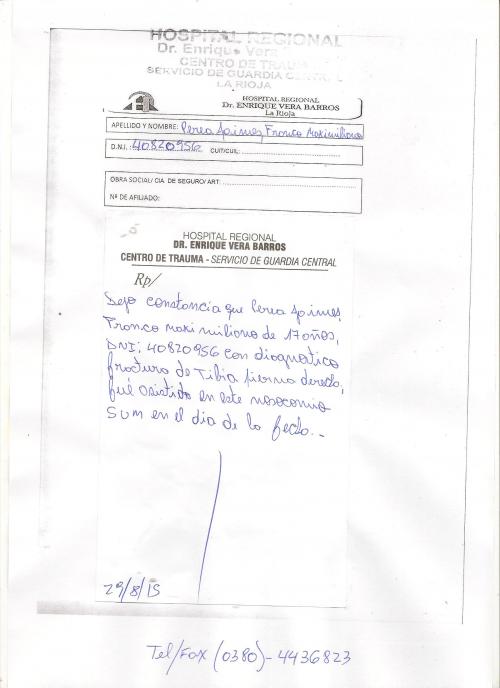 HOSPITAL REGIONAL
Dr. Enrique Vera
CENTRO DE TRAUMA
SERVICIO DE GUARDIA CENTRAL
LA RIOJA
HOSPITAL REGIONAL
Dr. ENRIQUE VERA BARROS
La Rioja
APELLIDO Y NOMBRE: Perea Jaimes, Franco Maximiliano
D.N.I.: 40820956 CUIT/CUIL:
OBRA SOCIAL/ CIA. DE SEGURO/ ART:
Nº DE AFILIADO:
HOSPITAL REGIONAL
DR. ENRIQUE VERA BARROS
CENTRO DE TRAUMA - SERVICIO DE GUARDIA CENTRAL
Rp/
Dejo constancia que Perea Jaimes,
Franco Maximiliano de 17 años,
DNI: 40820956 con diagnostico
fractura de Tibia pierna derecha,
fué asistido en este nosocomio
SUM en el dia de la fecha.-
29/8/15
Tel/Fax (0380)-4436823